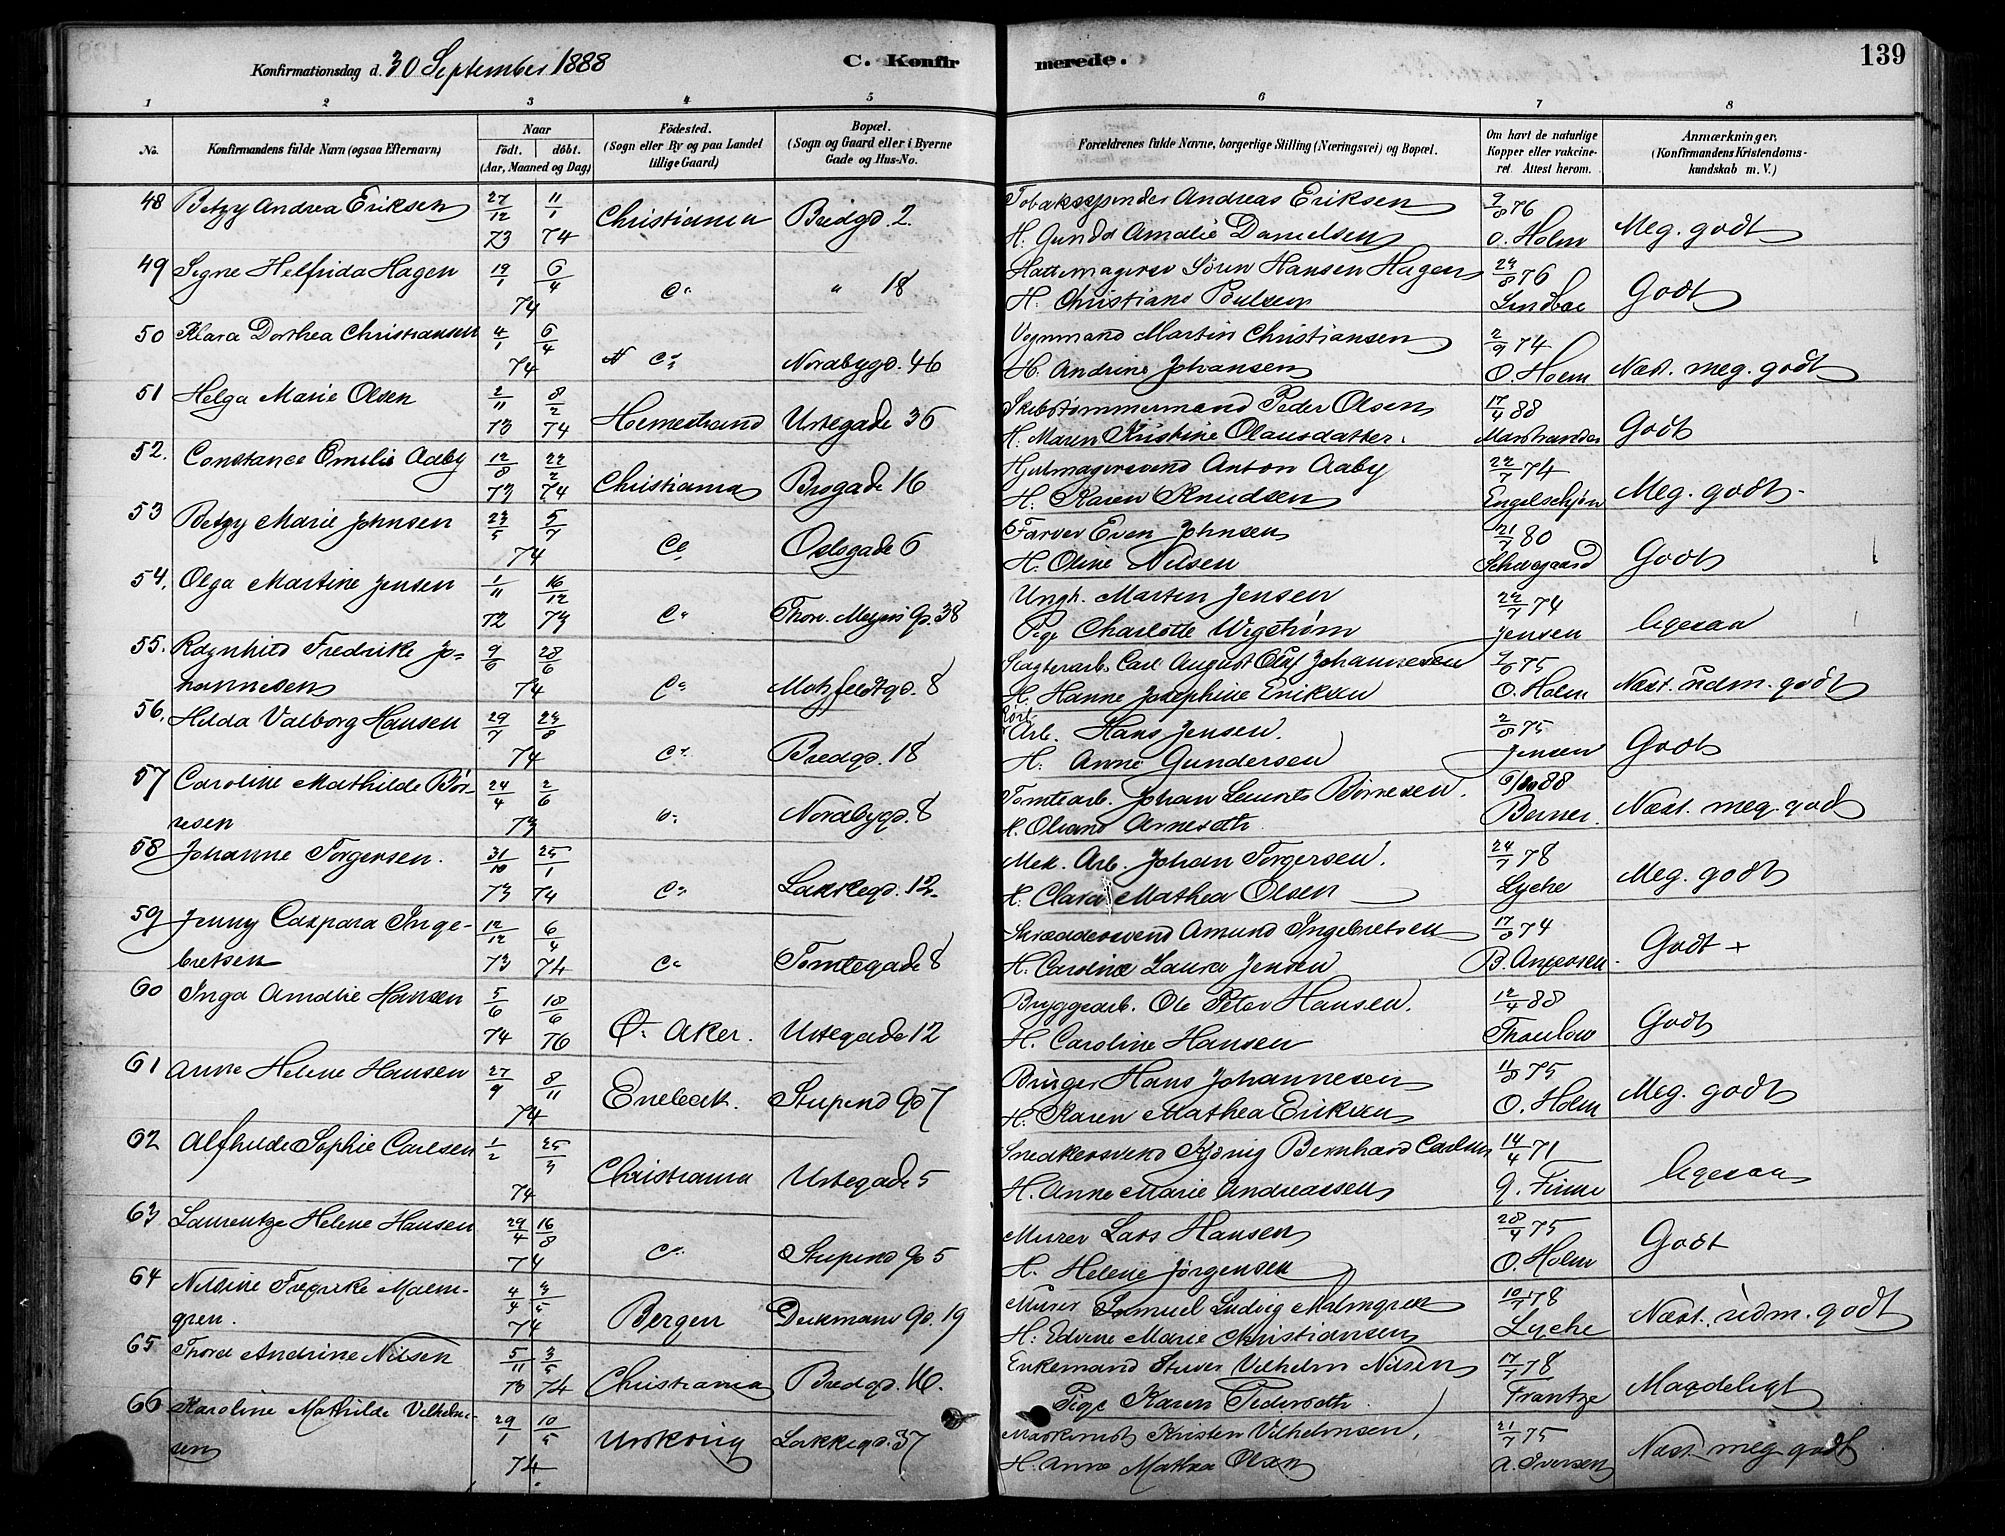 Konfirmationsdag d. 30 September 1888
C. Konfirmerede.
139
1 2 3 4 5 6 7 8
No.
Konfirmandens fulde Navn (ogsaa Efternavn)
Naar
Født. døbt.
(Aar, Maaned og Dag)
Fødested.
(Sogn eller By og paa Landet
tillige Gaard)
Bopæl.
(Sogn og Gaard eller i Byerne
Gade og Hus-No.
Forældrenes fulde Navne, borgerlige Stilling (Næringsvei) og Bopæl.
Om havt de naturlige
Kopper eller vakcine-
ret. Attest herom.
Anmærkninger,
(Konfirmandens Kristendoms-
kundskab m. V.)
48 Betzy Andrea Eriksen 27/12 73 11/1 74 Christiania Bredgd. 2.
Tobaksspinder Andreas Eriksen 9/8 76
H. Gunda Amalie Danielsen O. Holm Meg. godt
49 Signe Helfrida Hagen 19/1 6/4 74 Co " 18
Hattemagersv Søren Hansen Hagen 29/8 76
H. Christiane Poulsen Lindboe Godt
50 Klara Dorthea Christiansen 4/1 6/4 74 Co Nordbygd. 46
Vognmand Martin Christiansen 2/9 74
H. Andrine Johansen O. Holm Næst. meg. godt
51 Helga Marie Olsen 2/11 73 8/2 74 Holmestrand Urtegade 36
Skibstømmermand Peder Olsen 17/4 88
H. Maren Kristine Olausdatter. Marstrander Godt
52. Constance Emilie Aaby 12/8 73 22/2 74 Christiania Brogade 16
Hjulmagersvend Anton Aaby 22/7 74
H. Karen Knudsen Engelschjøn Meg. godt.
53 Betzy Marie Johnsen 23/5 5/7 74 Co Oslogade 6
Farver Even Johnsen 21/7 80
H. Oline Nilsen Schwegaard Godt
54. Olga Martine Jensen 1/11 72 16/12 73 Co Thorv. Meyers Gd. 38
Ungk. Martin Jensen 22/7 74
Pige Charlotte Wegstrøm Jensen ligesaa
55. Ragnhild Fredrikke Jo=
hannesen 9/6 28/6 74 Co Motzfeldtgd. 8
Slagterarb. Carl August Olaf Johannesen 75
H. Hanne Josephine Eriksen O. Holm Næst. udm. godt
56. Hilda Valborg Hansen 29/7 23/8 74 Co Bredgd. 18
Arb. Hans Jensen. 2/8 75
H. Anne Gundersen Jensen Godt
57 Caroline Mathilde Bør-
resen 24/4 2/6 73 Co Nordbygd. 8
Tomtearb. Johan Laurits Børresen. 88
H. Oliane Arnesdtr. Berner. Næst. meg. godt
58 Johanne Torgersen. 31/10 73 25/1 74 Co Lakkegd. 12.
Mek. Arb. Johan Torgersen. 24/7 78
H. Clara Mathea Olsen Lyche Meg. godt
59 Jenny Caspara Inge-
bretsen 12/12 73 6/4 74 Co Tomtegade 8
Skræddersvend Amund Ingebretsen 17/8 74
H. Caroline Laura Jensen Godt +
60 Inga Amalie Hansen 5/6 74 18/6 76 Ø. Aker. Urtegade 12
Bryggearb. Ole Peter Hansen. 12/4 88
H. Caroline Hansen Thaulow Godt
61 Anne Helene Hansen 27/9 8/11 74 Enebak. Stupend Gd 7
Hans Johannesen 75
H. Karen Mathea Eriksen O. Holm Meg. godt
62 Alfhilde Sophie Carlsen 1/2 25/3 74 Christiania Urtegade 5
Snedkersvend Bernhard Carlsen 14/4 71
H. Anne Marie Andreassen ligesaa
63 Laurentze Helene Hansen 29/4 16/8 74 Co Stupend Gd 5
Murer Lars Hansen 28/4 75
H. Helene Jørgensen O. Holm Godt
64 Nilsine Fredrikke Malm-
gren. 4/4 3/5 74 Bergen Deikmans Gd. 19
Murer Samuel Ludvig Malmgren 10/7 78
H. Edvine Marie Christiansen Lyche Næst. udm. godt
65 Thora Andrine Nilsen 5/11 73 3/5 74 Christiania Bredgd. 16.
Enkemand Stuer Vilhelm Nilsen 17/7 78
Pige Karen Pedersdtr. Frantze Maadeligt
66 Karoline Mathilde Vilhelm-
sen 29/1 10/5 74 Urskoug Lakkegd. 37
Maskinist Kristen Vilhelmsen. 21/7 75
H. Anne Mathea Olsen A. Iversen Næst. meg. godt